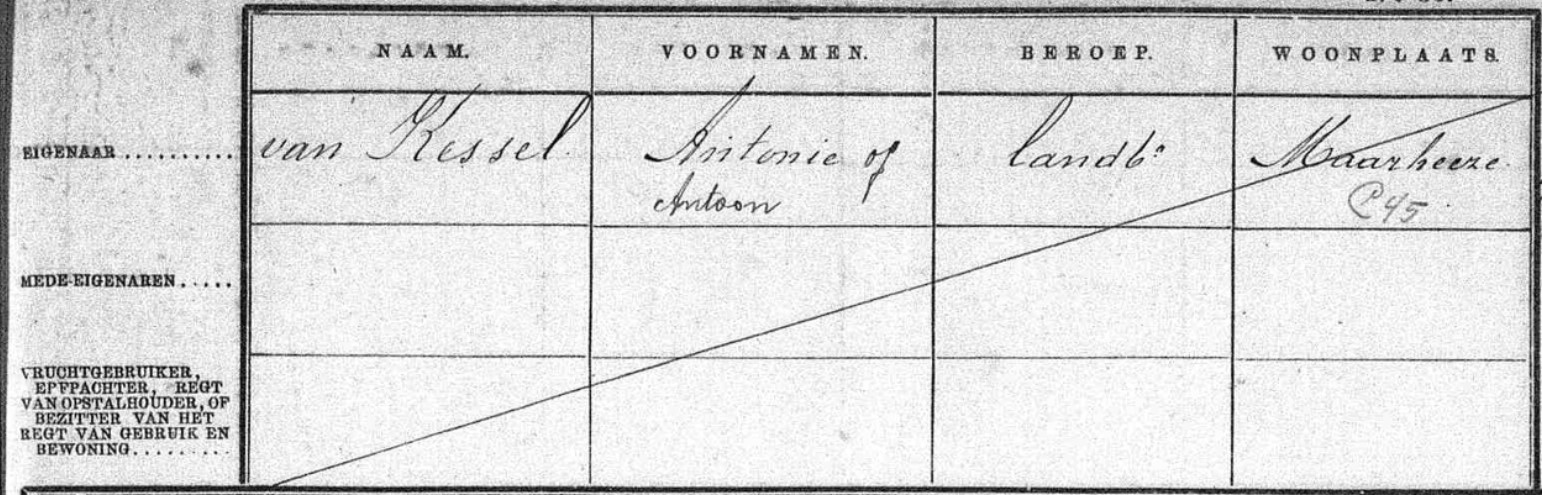 NAAM. VOORNAMEN. BEROEP. WOONPLAATS.
EIGENAAR .......... van Kessel Antonie of landbr Maarheeze
Antoon P45
MEDE-EIGENAREN .....
VRUCHTGEBRUIKER,
EPFPACHTER, REGT
VAN OPSTALHOUDER, OF
BEZITTER VAN HET
REGT VAN GEBRUIK EN
BEWONING.........